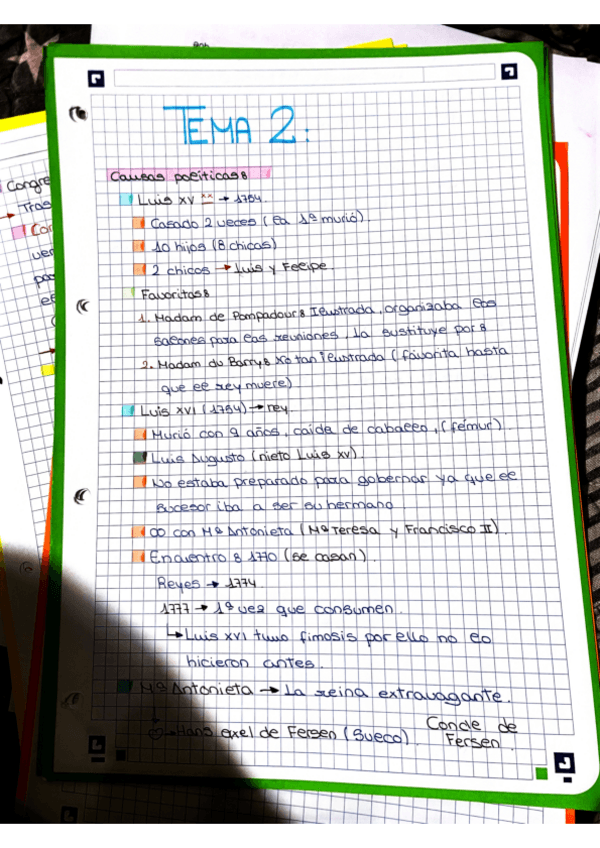 TEMA 2:
Causas políticas:
Luis XV → 1754.
Casado 2 veces (la 1ª murió).
10 hijos (8 chicas)
2 chicos → Luis y Felipe.
Favoritas:
1. Madam de Pompadour: Ilustrada, organizaba los
salones para las reuniones, la sustituye por:
2. Madam du Barry: no tan ilustrada (favorita hasta
que el rey muere)
Luis XVI (1754) → rey.
Murió con 9 años, caida de caballo, (fémur).
Luis Augusto (nieto Luis XV)
No estaba preparado para gobernar ya que el
sucesor iba a ser su hermano.
∞ con Mª Antonieta (Mª Teresa y Francisco II).
Encuentro: 1770 (se casan).
Reyes → 1774.
1777 → 1ª vez que consumen.
↳ Luis XVI tuvo fimosis por ello no lo
hicieron antes.
Mª Antonieta → La reina extravagante.
→ Hans axel de Fersen (Sueco). Conde de
Fersen.
Congre
→ Tras
Con
ver